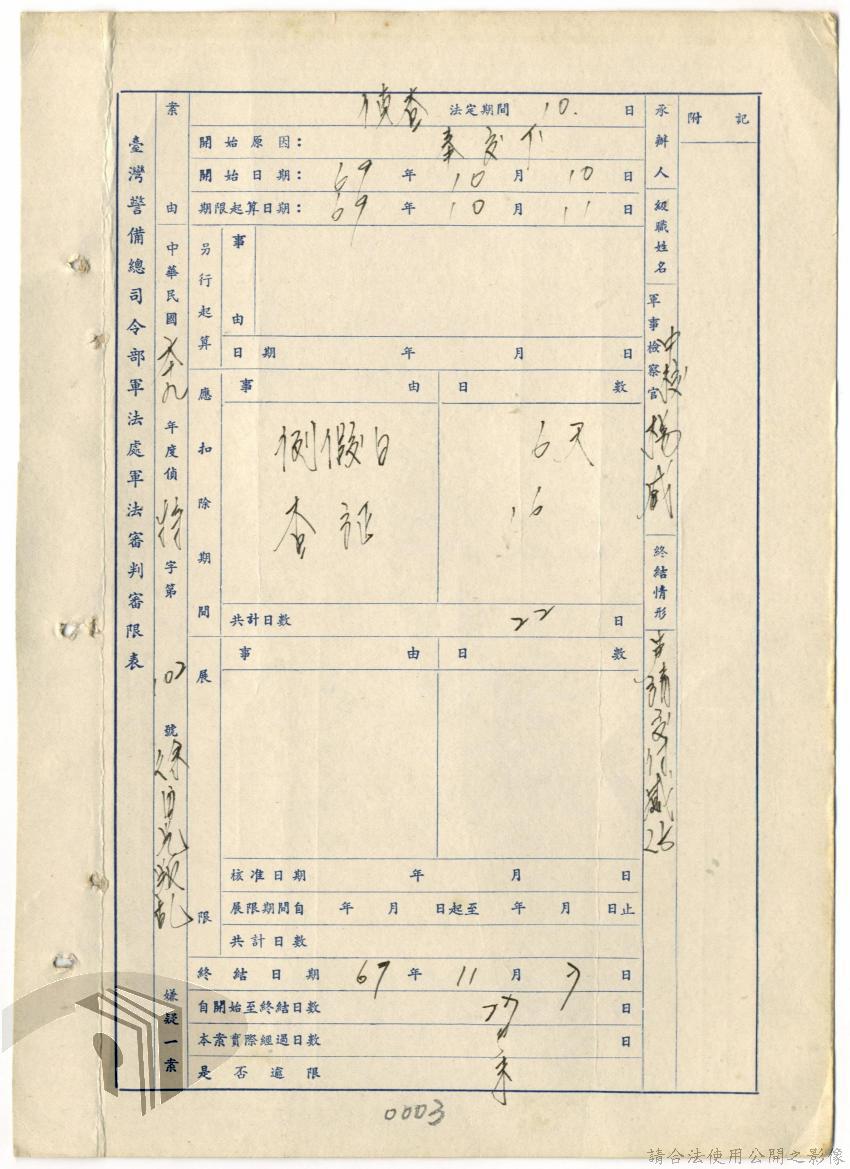 臺灣警備總司令部軍法處軍法審判審限表
案由 中華民國六十九年度偵特字第102號 叛亂嫌疑一案
偵查 法定期間 10. 日
開始原因: 奉交下
開始日期: 69年10月10日
期限起算日期: 69年10月11日
另行起算
事由
日期 年 月 日
應扣除期間
事由 日數
例假日 6天
查証 16
共計日數 22 日
展限
事由 日數
核准日期 年 月 日
展限期間自 年 月 日起至 年 月 日止
共計日數
終結日期 69年11月7日
自開始至終結日數 日
本案實際經過日數 日
是否逾限 未
承辦人級職姓名 軍事檢察官 中校 楊
終結情形
附記
0003
請合法使用公開之影像